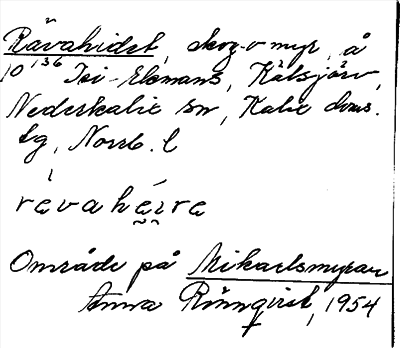 Rävahidet, skog o myr, å
10 136 Isi-Ekmans, Kälsjärv,
Nederkalix sn, Kalix doms.
lg, Norrb. l
rävahæira
Område på Mikaelsmyran
Anna Rönnqvist, 1954